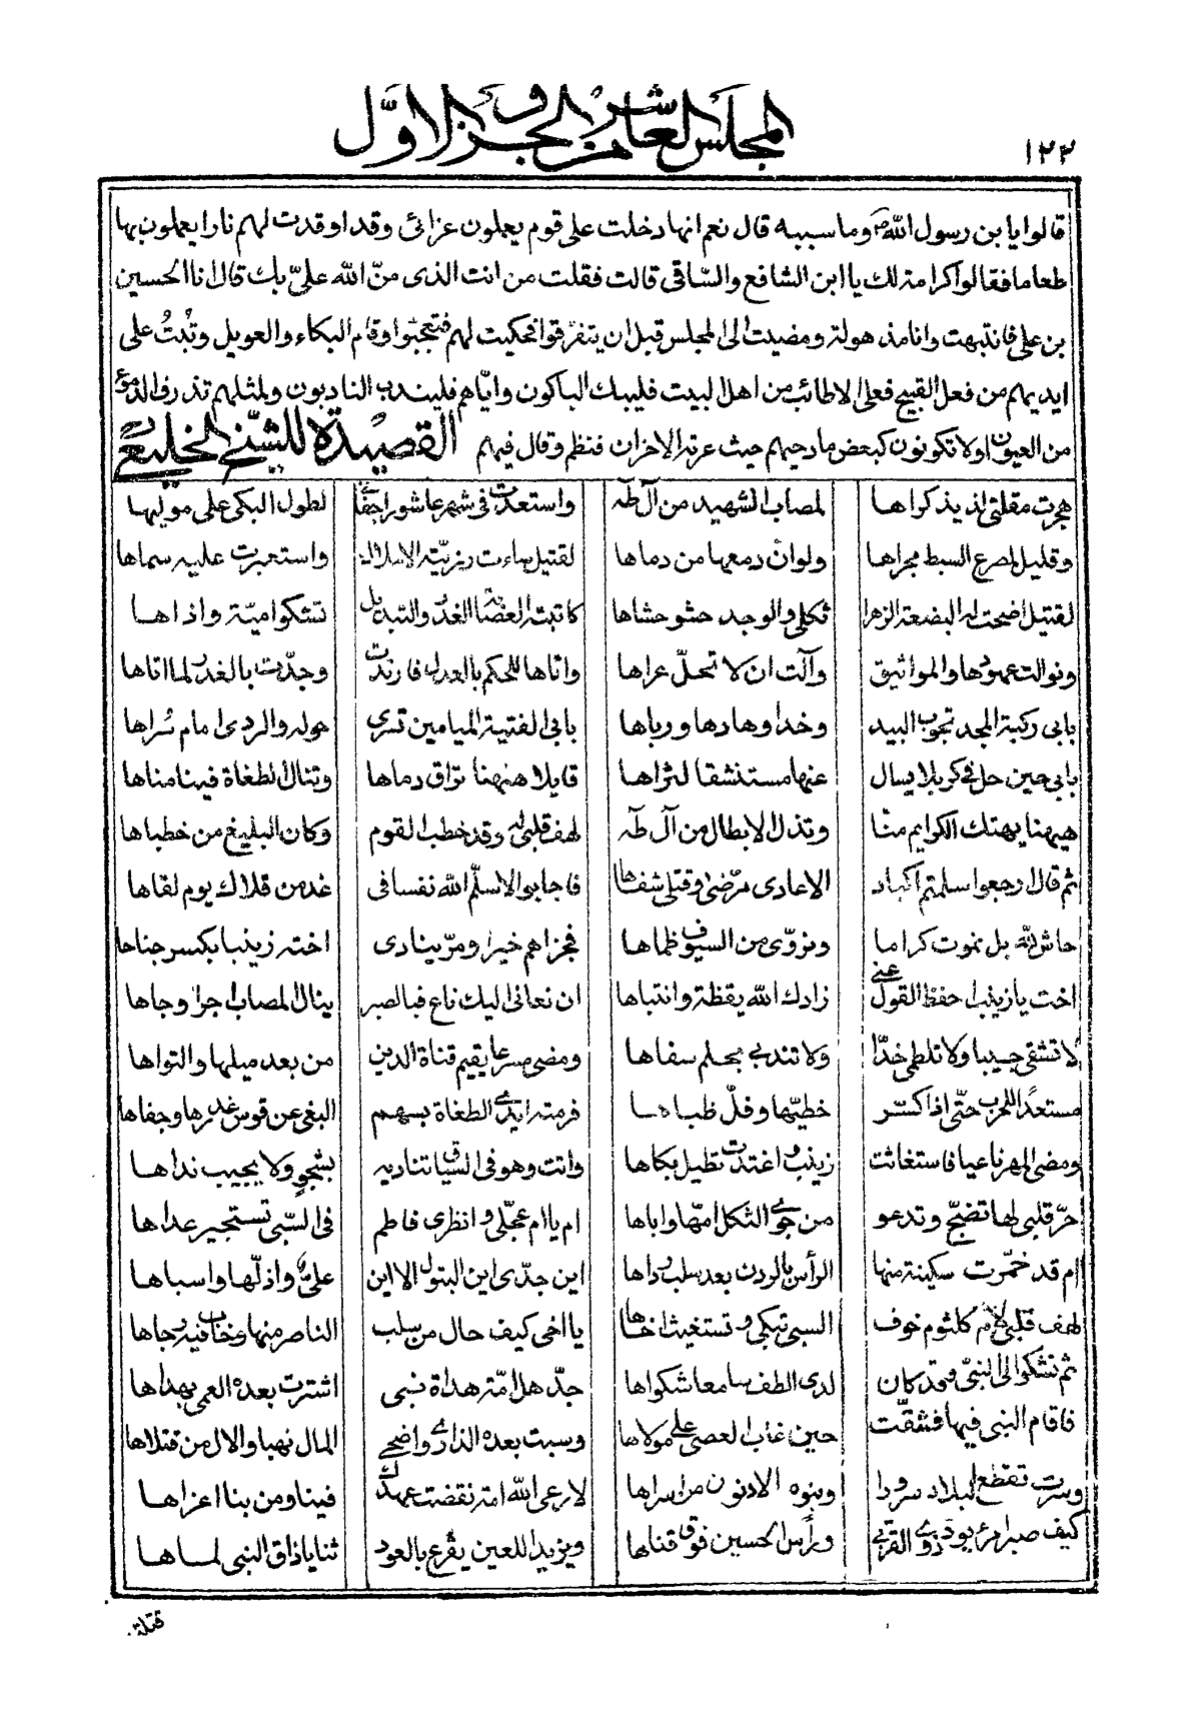 ١٢٢
المجلس العاشر من الجزؤ الاوّل
قالوا يا بن رسول اللهؐ وما سببه قال نعم انها دخلت على قوم يعملون عزائى وقد اوقدت لهم نارا يعملون بها
طعاما فقالوا كرامة لك يا ابن الشافع والسّاقى قالت فقلت من انت الذى منّ الله علىّ بك قال انا الحسين
بن على فانتبهت وانا مذهولة ومضيت الى المجلس قبل ان يتفرّقوا فحكيت لهم فتعجّبوا وقام البكاء والعويل وتبتُ على
ايديهم من فعل القبيح فعلى الاطائب من اهل البيت فليبك الباكون وايّاهم فليندب النادبون ولمثلهم تذرف الدموع
من العيون اولا تكونون كبعض مادحيهم حيث عرته الاحزان فنظم وقال فيهم القصيدة للشّيخ الخليعىؒ
هجرت مقلتى لذيذ كراها لمصاب الشهيد من آل طه واستعدت فى شهر عاشورا جفانى لطول البكى على موليها
وقليل لمصرع السبط مجراها ولو ان دمعها من دماها لقتيل ساءت رزيّته الاسلام واستعبرت عليه سماها
لقتيل اضحت له البضعة الزهرا ثكلى والوجد حشو حشاها كاتبته العصابة الغدر والتبديل تشكو اميّة واذاها
وتوالت عهودها والمواثيق وآلت ان لا تحلّ عراها واتاها للحكم بالعدل فارتدت وجدّت بالغدر لما اتاها
بابى ركبة المجد تجوب البيد وخدا وهادها ورباها بابى الفتية الميامين تسرى حوله والردى امام سُراها
بابى حين حل فى كربلا يسال عنها مستنشقا لثراها قايلا هيهنا تراق دماها وتنال الطغاة فينا مناها
هيهنا يهتك الكرايم منّا وتذل الابطال من آل طه لهف قلبى له وقد خطب القوم وكان البليغ من خطباها
ثم قال ارجعوا سلمتم اكباد الاعادى مرّضى وقتلى شفاها فاجابوا لا سلّم الله نفسا فى غد من قلاك يوم لقاها
حاش لله بل نموت كراما ونروّى من السيوف ظماها فجزاهم خيرا ومرّ ينادى اخته زينبا بكسر جناحا
اخت يا زينب احفظ القول عنى زادك الله يقظة وانتباها ان نعانى اليك ناع فبالصبر ينال المصاب اجرا وجاها
لا تشقى جيبا ولا تلطمى خدّا ولا تندبى بحلم سفاها ومضى مسرعا يقيم قناة الدين من بعد ميلها والتواها
مستعدًا للحرب حتّى اذا كسّر خطيّها وفلّ ظباها فرمته ايدى الطغاة بسهم البغى عن قوس غدرها وجفاها
ومضى المهر ناعيا فاستغاثت زينب واغتدت تطيل بكاها واتت وهو فى السّياق تناديه بشجوٍ ولا يجيب نداها
حرّ قلبى لها تضجّ وتدعو من جوى الثكل امّها واباها ام يا ام عجّلى وانظرى فاطم فى السّبى تستجير عداها
ام قد خمّرت سكينة منها الرأس بالردن بعد سلب رداها اين جدّى اين البتول الا اين علىٌّ واذلّها واسباها
لهف قلبى لامّ كلثوم خوف السبى تبكى وتستغيث اخاها يا اخى كيف حال من سلب الناصر منها وخاب فيه رجاها
ثم تشكو الى النبى وقد كان لدى الطف سامعا شكواها جدّ هل امّة هداة نبى اشترت بعده العمى بهداها
فاقام النبى فيها فشقّت حين غاب العصى على مولاها وسبت بعده الذرارى واضحى المال نهبا والال من قتلاها
وسرت تقطع البلاد سرودا وبنوه الادنون من اسراها لا رعى الله امة نقضت عهدك فينا ومن بنا اعزاها
كيف صبر امرئ يود ذوى القربى ورأس الحسين فوق قناها ويزيد اللعين يقرع بالعود ثنايا ذاق النبى لماها
قتلة